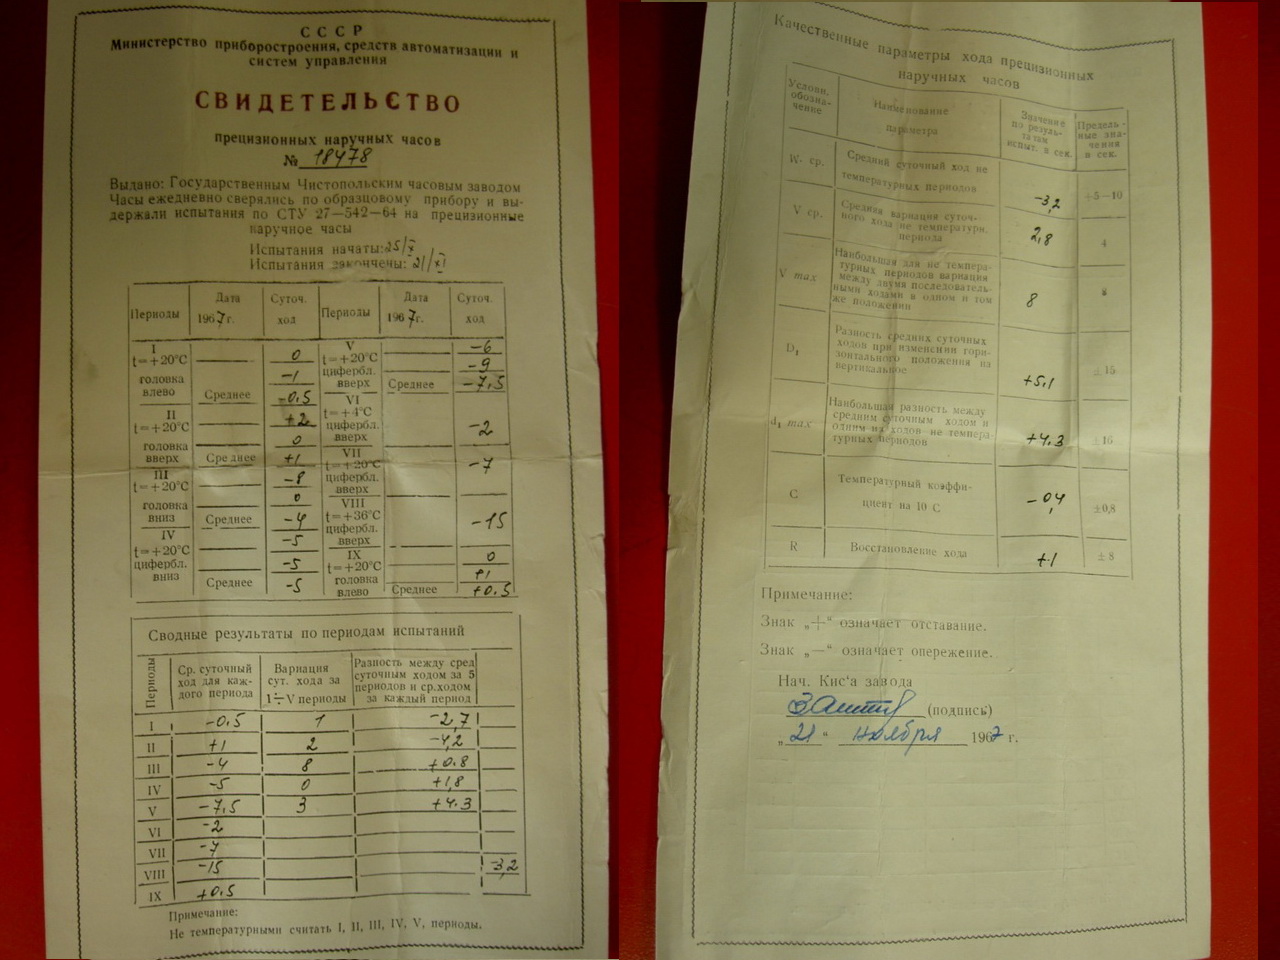 СССР
Министерство приборостроения, средств автоматизации и
систем управления
СВИДЕТЕЛЬСТВО
прецизионных наручных часов
№ 18478
Выдано: Государственным Чистопольским часовым заводом
Часы ежедневно сверялись по образцовому прибору и вы-
держали испытания по СТУ 27—542—64 на прецизионные
наручное часы
Испытания начаты: 25/X
Испытания закончены: 21/XI
Периоды Дата 1967 г. Суточ. ход Периоды Дата 1967 г. Суточ. ход
I t=+20°C головка влево 0
-1
Среднее -0.5
II t=+20°C головка вверх +2
0
Среднее +1
III t=+20°C головка вниз -8
0
Среднее -4
IV t=+20°C цифербл. вниз -5
-5
Среднее -5
V t=+20°C цифербл. вверх -6
-9
Среднее -7,5
VI t=+4°C цифербл. вверх -2
VII t=+20°C цифербл. вверх -7
VIII t=+36°C цифербл. вверх -15
IX t=+20°C головка влево 0
+1
Среднее +0.5
Сводные результаты по периодам испытаний
Периоды
Ср. суточный ход для каж-
дого периода
Вариация
сут. хода за
1÷V периоды
Разность между сред
суточным ходом за 5
периодов и ср.ходом
за каждый период
I -0.5 1 -2,7
II +1 2 -4,2
III -4 8 +0.8
IV -5 0 +1,8
V -7,5 3 +4.3
VI -2
VII -7
VIII -15 -3,2
IX +0.5
Примечание:
Не температурными считать I, II, III, IV, V, периоды.
Качественные параметры хода прецизионных
наручных часов
Условн.
обозна-
чение
Наименование
параметра
Значение
по резуль-
татам
испыт. в сек.
Предель-
ные зна-
чения
в сек.
W. ср. Средний суточный ход не
температурных периодов -3,2 +5—10
V ср. Средняя вариация суточ-
ного хода не температурн.
периода 2,8 4
V max Наибольшая для не темпера-
турных периодов вариация
между двумя последователь-
ными ходами в одном и том
же положении 8
D₁ Разность средних суточных
ходов при изменении гори-
зонтального положения на
вертикальное +5,1 ±15
d₁ max Наибольшая разность между
средним суточным ходом и
одним из ходов не темпера-
турных периодов +4.3 ±16
C Температурный коэффи-
циент на 10 С -0,4 ±0,8
R Восстановление хода +1 ±8
Примечание:
Знак „+“ означает отставание.
Знак „—“ означает опережение.
Нач. Кис‘а завода
(подпись)
„21“ ноября 1967 г.